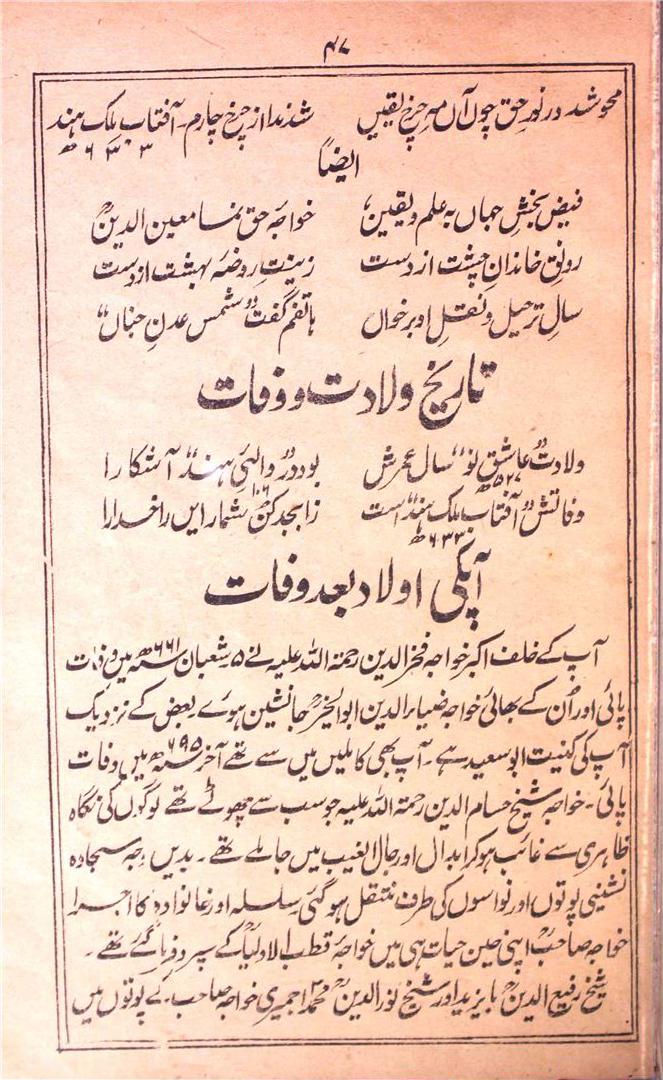 ۴۷
محو شد در نورِ حق چوں آں مہِ چرخِ یقیں شد ندا از چرخ چارم۔ آفتابِ ملک ہند
۶۳۳ھ
ایضاً
فیض بخشِ جہاں بہ علم و یقین، خواجۂ حق نما معین الدینؒ
رونقِ خاندانِ چشت از دست زینتِ روضۂ بہشت از دست
سالِ ترحیل و نقلِ او برخواں ہاتفم گفت ”شمس عدنِ جناں“
تاریخ ولادت و وفات
ولادت ”عاشق نو“ سال عمرش بود در ”والیِ ہند“ آشکارا
۵۲۷ھ ۱۰۶
وفاتش ”آفتابِ ملک ہند“ است ز ابجد کن شمار ایں را خدارا
۶۳۳ھ
آپکی اولاد بعد وفات
آپ کے خلف اکبر خواجہ فخرالدین رحمۃ اللہ علیہ نے ۵ شعبان ۶۶۱ھ میں وفات
پائی اور اُن کے بھائی خواجہ ضیاء الدین ابوالخیرؒ جانشین ہوئے بعض کے نزدیک
آپ کی کنیت ابوسعید ہے۔ آپ بھی کاملیں میں سے تھے آخر ۶۹۵ھ میں وفات
پائی۔ خواجہ شیخ حسام الدین رحمۃ اللہ علیہ جو سب سے چھوٹے تھے لوگوں کی نگاہ
ظاہری سے غائب ہوکر ابدال اور رجال الغیب میں جا ملے تھے۔ بدیں وجہ سجادہ
نشینی پوتوں اور نواسوں کی طرف منتقل ہو گئی سلسلہ اور خانوادہ کا اجرا
خواجہ صاحبؒ اپنی عین حیات ہی میں خواجہ قطب الاولیاؒ کے سپرد فرما گئے تھے۔
شیخ رفیع الدینؒ بایزید اور شیخ نورالدینؒ محمد اجمیری خواجہ صاحب کے پوتوں میں